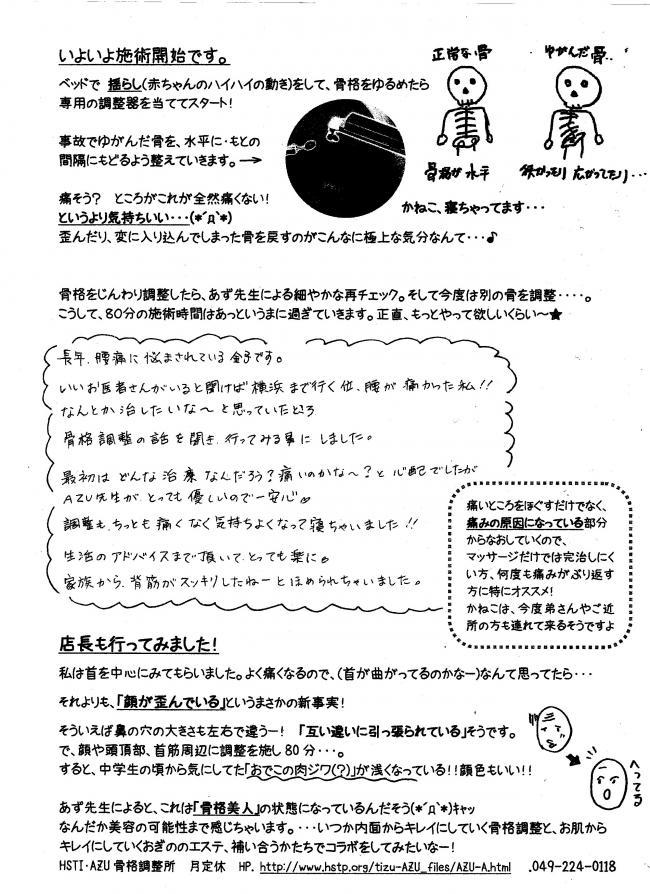 いよいよ施術開始です。
ベッドで 揺らし(赤ちゃんのハイハイの動き)をして、骨格をゆるめたら
専用の調整器を当ててスタート!
正常な骨
ゆがんだ骨..
骨格が水平
広がってしたり・・・
事故でゆがんだ骨を、水平に・もとの
間隔にもどるよう整えていきます。→
痛そう? ところがこれが全然痛くない!
というより気持ちいい・・・(*´д`*)
かねこ、寝ちゃってます・・・
歪んだり、変に入り込んでしまった骨を戻すのがこんなに極上な気分なんて・・・♪
骨格をじんわり調整したら、あず先生による細やかな再チェック。そして今度は別の骨を調整・・・・。
こうして、80分の施術時間はあっというまに過ぎていきます。正直、もっとやって欲しいくらい~★
長年、腰痛に悩まされている金子です。
いいお医者さんがいると聞けば横浜まで行く位、腰が痛かった私!!
なんとか治したいな~と思っていたところ
骨格調整の話を聞き、行ってみる事にしました。
最初はどんな治療なんだろう?痛いのかな~?と心配でしたが
AZU先生がとっても優しいので一安心
調整も、ちっとも痛くなく気持ちよくなって寝ちゃいました!!
生活のアドバイスまで頂いて、とっても楽に。
家族から、背筋がスッキリしたねーとほめられちゃいました。
痛いところをほぐすだけでなく、
痛みの原因になっている部分
からなおしていくので、
マッサージだけでは完治しにく
い方、何度も痛みがぶり返す
方に特にオススメ!
かねこは、今度弟さんやご近
所の方も連れて来るそうですよ
店長も行ってみました!
私は首を中心にみてもらいました。よく痛くなるので、(首が曲がってるのかなー)なんて思ってたら・・・
それよりも、「顔が歪んでいる」というまさかの新事実!
そういえば鼻の穴の大きさも左右で違うー! 「互い違いに引っ張られている」そうです。
で、顔や頭頂部、首筋周辺に調整を施し80分・・・。
すると、中学生の頃から気にしてた「おでこの肉ジワ(?)」が浅くなっている!!顔色もいい!!
へってる
あず先生によると、これは「骨格美人」の状態になっているんだそう(*´д`*)キャッ
なんだか美容の可能性まで感じちゃいます。・・・いつか内面からキレイにしていく骨格調整と、お肌から
キレイにしていくおぎののエステ、補い合うかたちでコラボをしてみたいなー!
HSTI・AZU骨格調整所 月定休 HP. http://www.hstp.org/tizu-AZU_files/AZU-A.html .049-224-0118